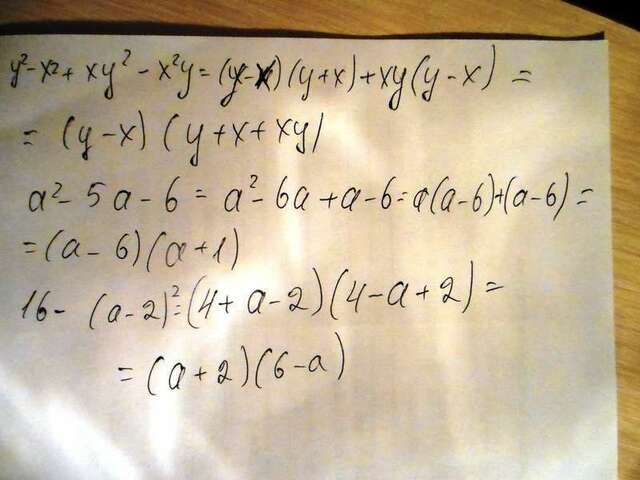 y² - x² + xy² - x²y = (y-x)(y+x)+xy(y-x) =
= (y-x)(y+x+xy)
a² - 5a - 6 = a² - 6a + a - 6 = a(a-6)+(a-6) =
= (a-6)(a+1)
16 - (a-2)² = (4+a-2)(4-a+2) =
= (a+2)(6-a)